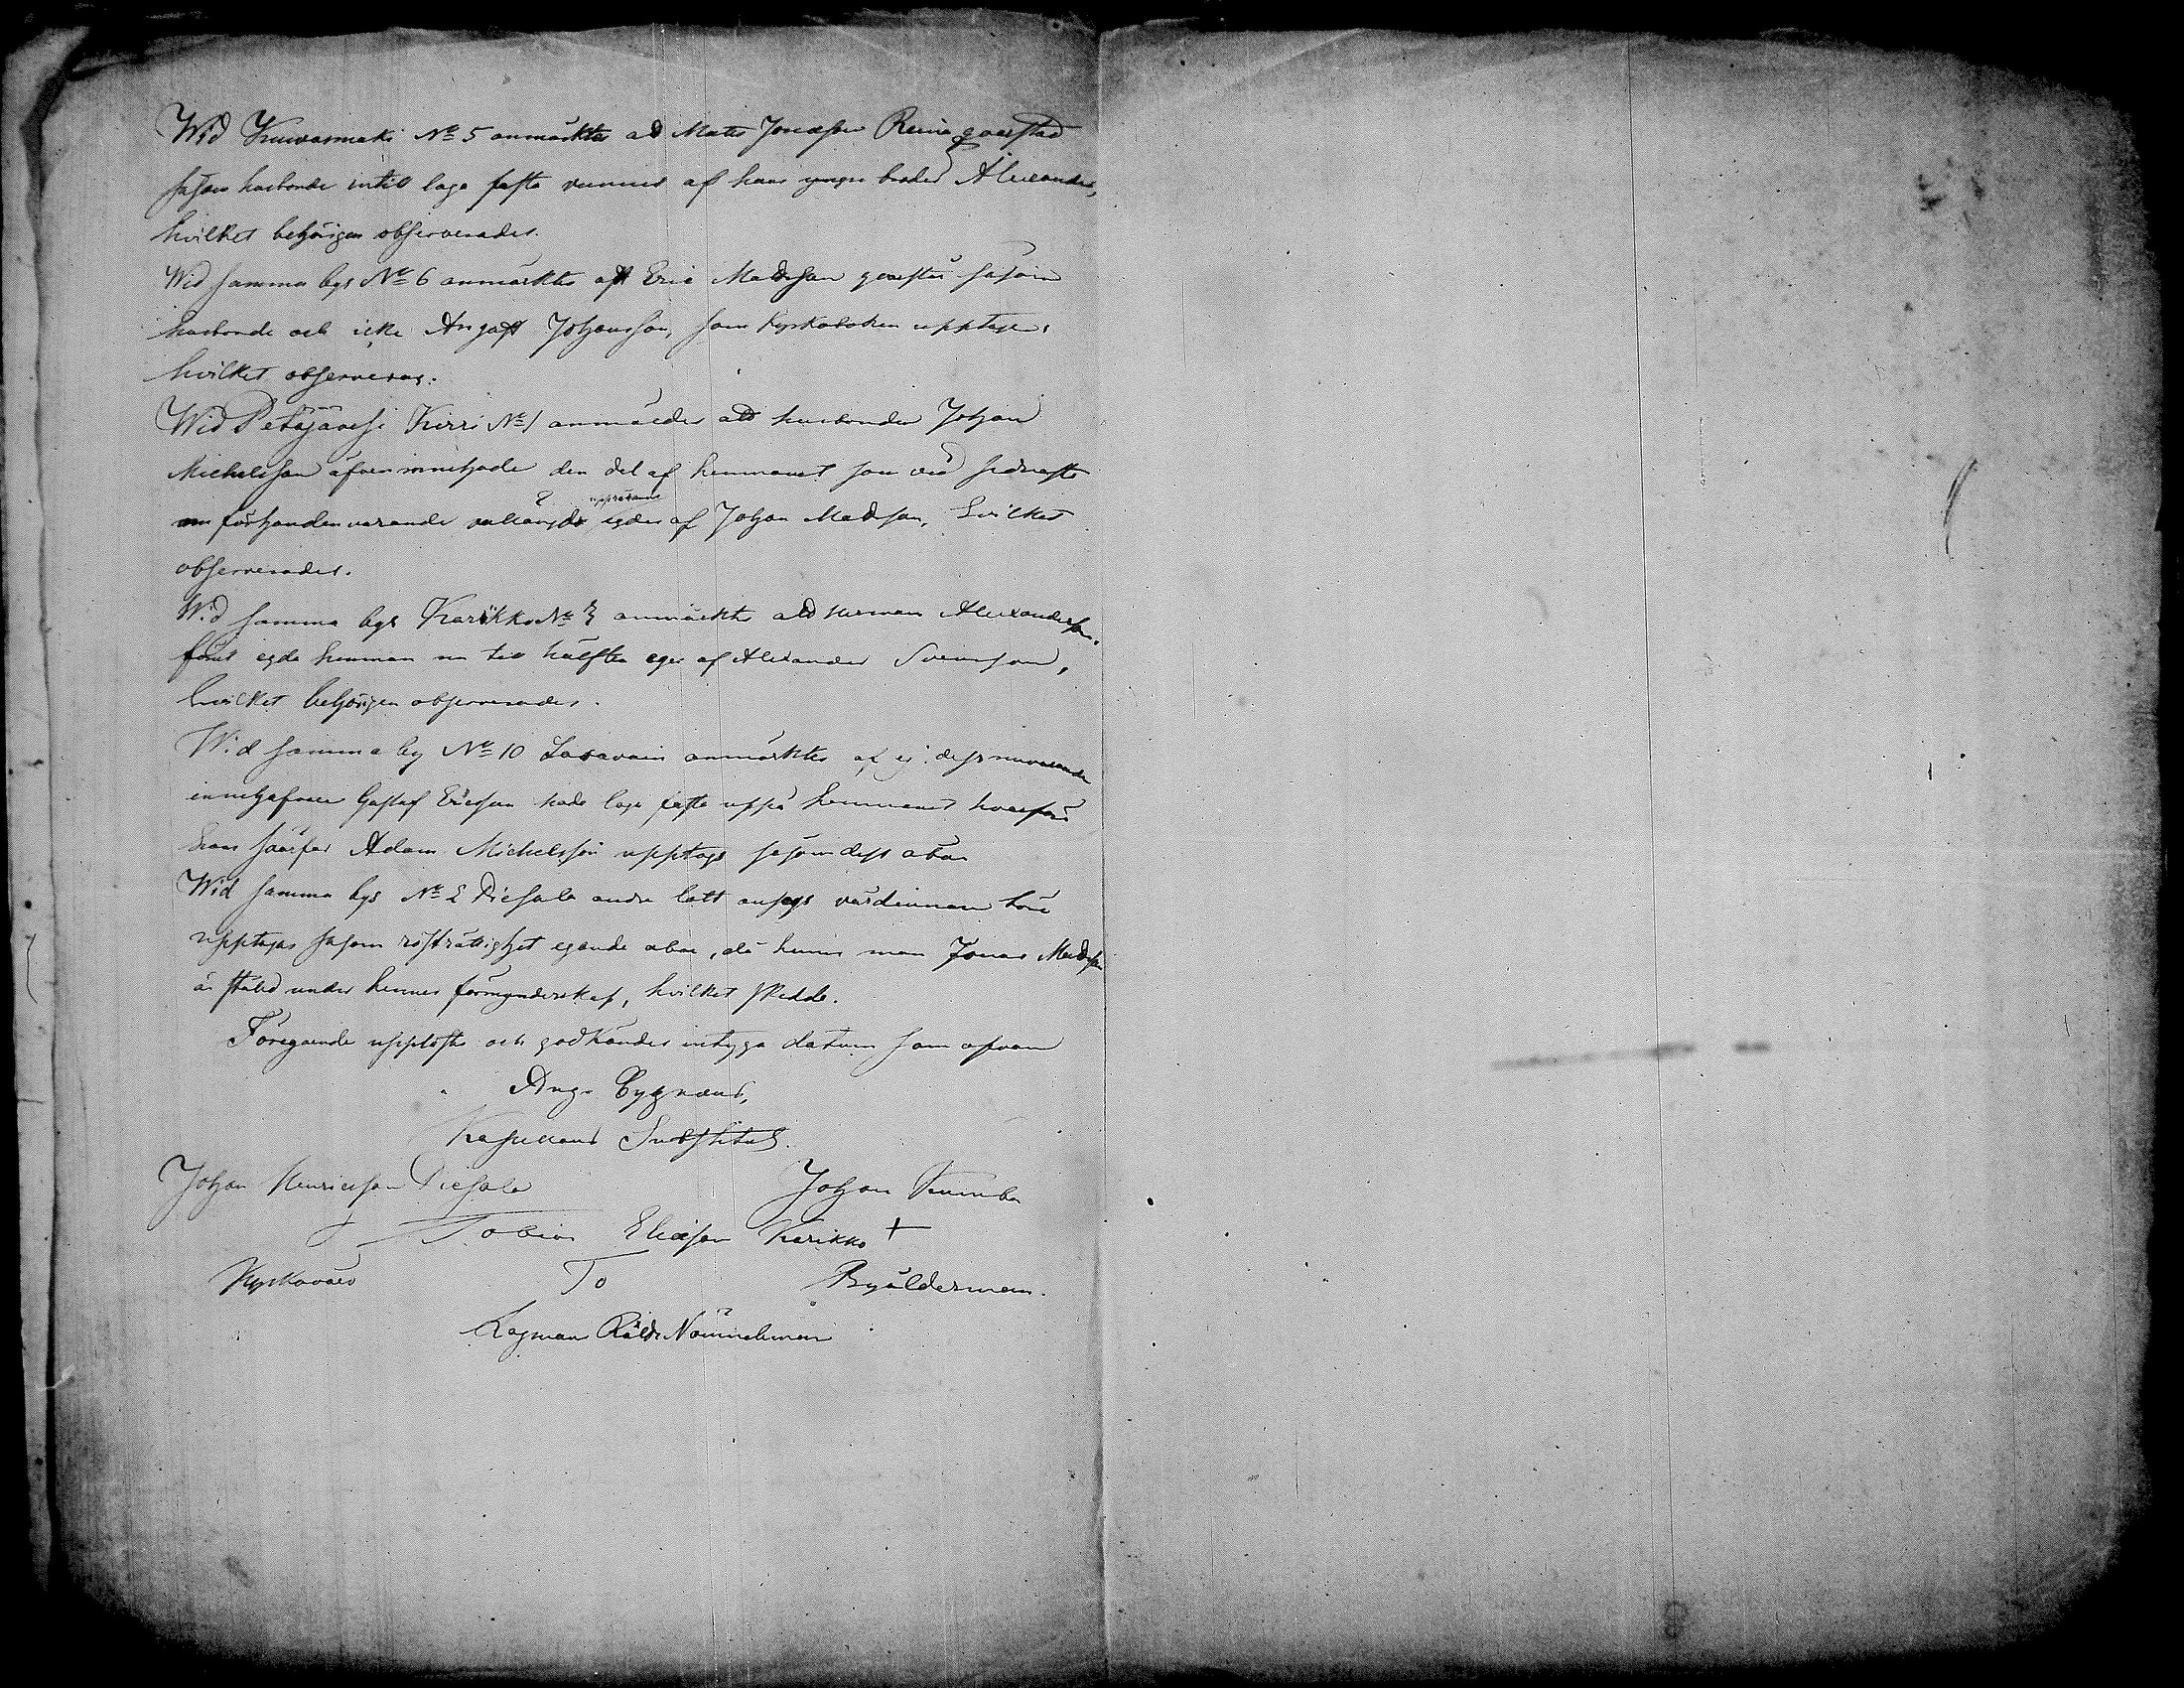 Wid Kuivasmäki No 5 anmärktes att Mats Jonasson Reinio qvarstod
såsom husbonde intill laga fasta vunnits af hans yngre broder Alexander,
hvilket behörigen observerades.
Wid samma bys No 6 anmärktes att Eric Madsson qvarstår såsom
husbonde och icke August Johansson, som kyrkoboken upptager,
hvilket observeras.
Wid Petäjävesi Kirri No 1 anmäldes att husbonden Johan
Michelsson äfven innehade den del af hemmanet som vid sednaste
nu förhandenvarande vallängd upptoges egdes af Johan Madsson, hvilket
observerades.
Wid samma bys Karikko No 3 anmärktes att Herman Alexandersson
förut egde hemman nu till hälften eges af Alexander Svensson,
hvilket behörigen observerades.
Wid samma by No 10 anmärktes at ej dess nuvarande
innehafvare Gustaf Ericsson hade laga fasta uppå hemmanet hvarför
hans svärfar Adam Michelsson upptogs såsom dess åbo
Wid samma bys No 2 Piesala andra lott ansågs värdinnan böra
upptagas såsom rösträttighet egande åbo, då hennes man Jonas Madsson
är stäld under hennes förmynderskap, hvilket skedde.
Föregående upplästes och godkändes intyga datum som ofvan
Aug. Cygnæus,
Kapellans Substitut.
Johan Henricsson Piesala Johan
Tobias Eliasson Karikko +
Kyrkovärd To Byålderman.
Lagman